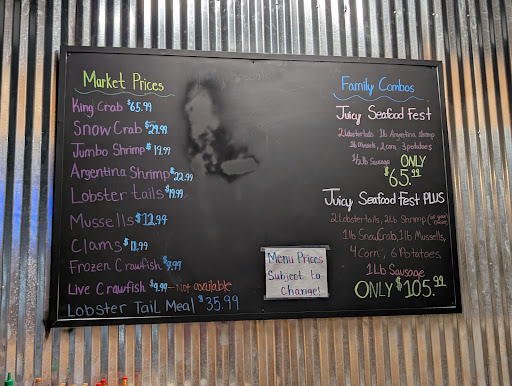 Market Prices
King Crab $65.99
Snow Crab $29.99
Jumbo Shrimp $19.99
Argentina Shrimp $22.99
Lobster tails $19.99
Mussells $12.99
Clams $11.99
Frozen Crawfish $9.99
Live Crawfish $9.99 - Not available
Lobster Tail Meal $35.99
Menu Prices
Subject to
Change!
Family Combos
Juicy Seafood Fest
2 Lobstertails 1lb Argentina shrimp
1lb Mussels, 2 corn 3 potatoes
1/2 lb Sausage ONLY
$65.99
Juicy Seafood Fest PLUS
2 Lobstertails, 2lb Shrimp (of your choice)
1lb SnowCrab, 1lb Mussells,
4 Corn, 6 Potatoes,
1 Lb Sausage
ONLY $105.99